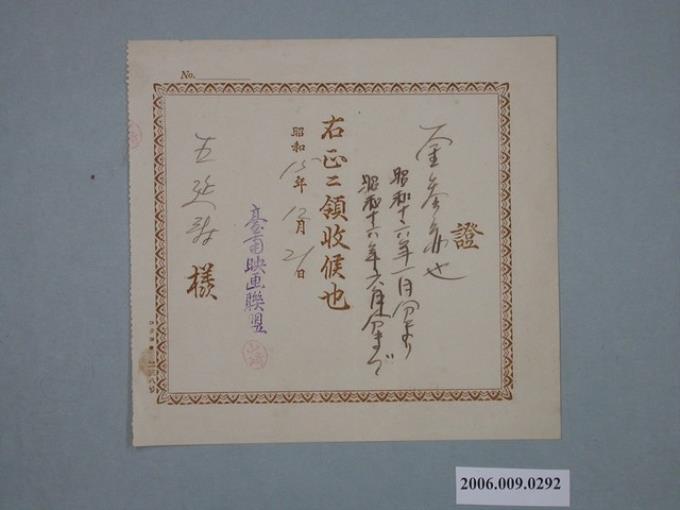 No.
證
金參圓也
昭和十六年一月分より
昭和十六年六月分まで
右正ニ領收候也
昭和15年12月21日
臺南映画聯盟
山崎
様
2006.009.0292